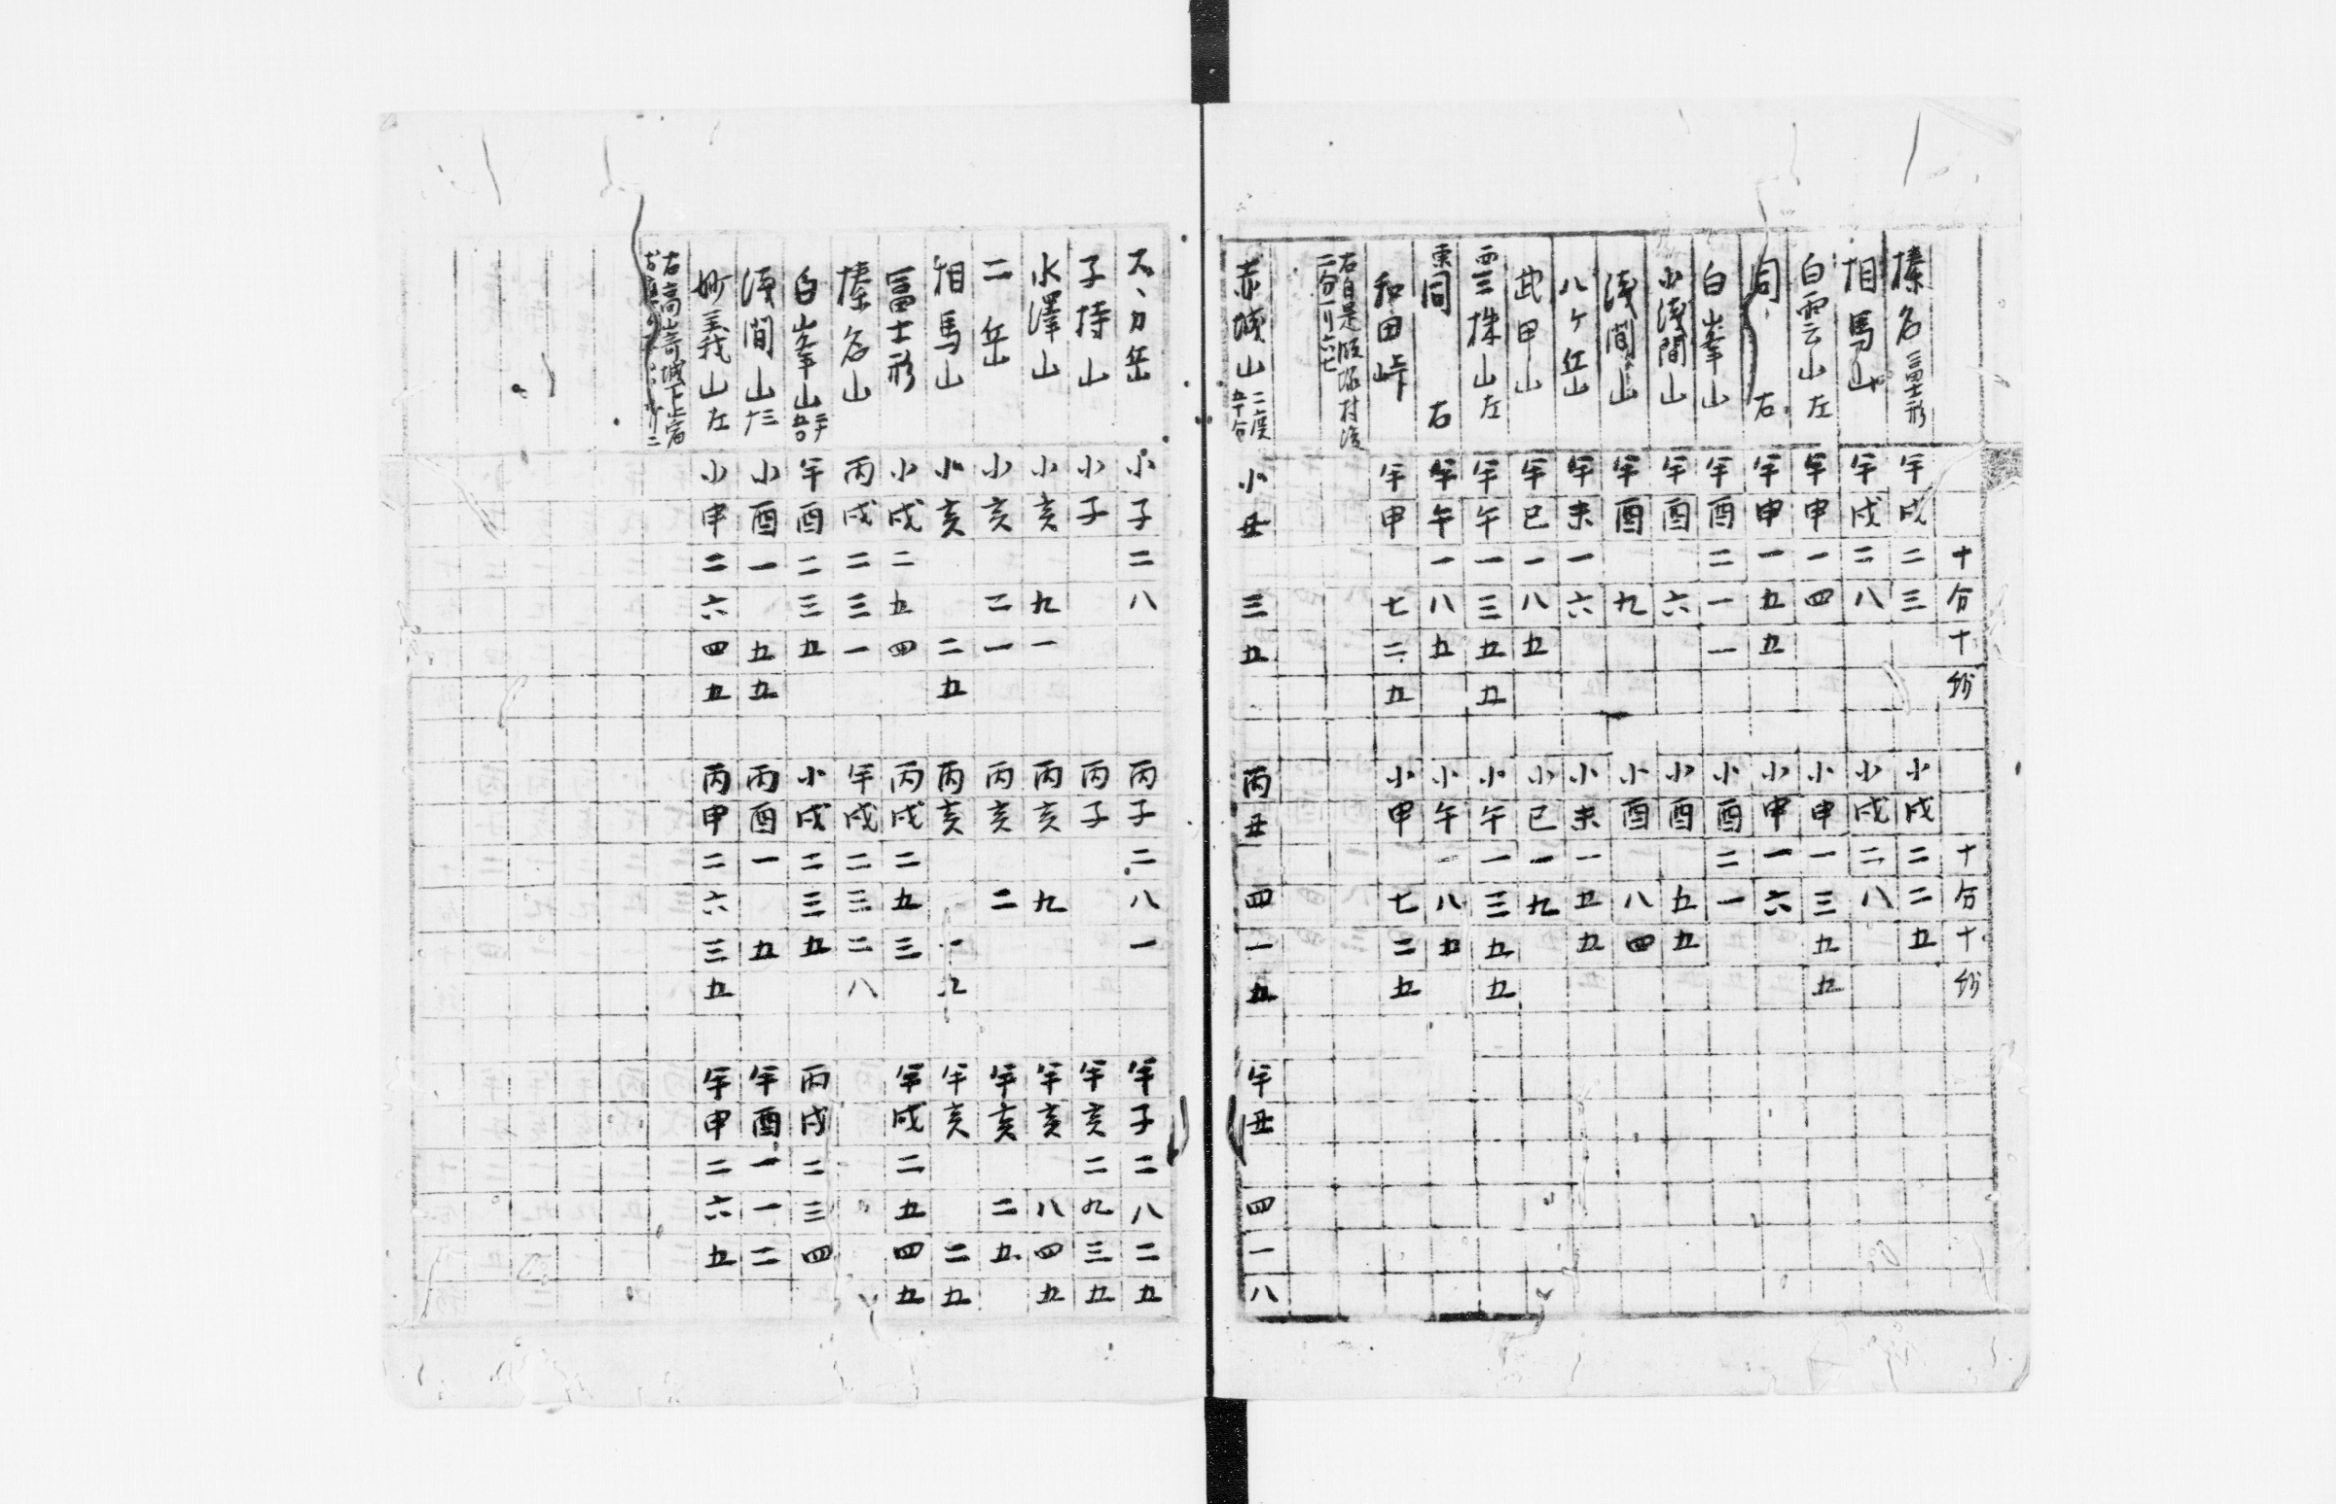 十分十秒 十分十秒
榛名 冨士形 午戌二三 小戌二二五
相馬山 午戌二八 小戌二八
白雲山 左 午申一四 小申一三五五
同 右 午申一五五 小申一六
白峯山 午酉二一一 小酉二一
小浅間山 午酉六 小酉五五
浅間山 午酉九 小酉八四
八ケ岳 午未一六 小未一五五
武甲山 午巳一八五 小巳一九
西三株山 左 午午一三五五 小午一三五五
東同 右 午午一八五 小午一八五
和田峠 午申七二五 小申七二五
赤城山 二度 小丑三五 丙丑四一五 午丑四一八
子子二八 丙子二八一 午子二八二五
子持山 小子 丙子 午亥二九三五
水澤山 小亥九一 丙亥九 午亥八四五
二岳 小亥二一 丙亥二 午亥二五
相馬山 小亥二五 丙亥一九 午亥二五
冨士形 小戌二五四 丙戌二五三 午戌二五四五
榛名山 丙戌二三一 午戌二三二八
白峯山 午酉二三五 小戌二三五 丙戌二三四
浅間山 十三 小酉一五五 丙酉一五 午酉一一二
妙義山 左 小申二六四五 丙申二六三五 午申二六五
右高崎城下